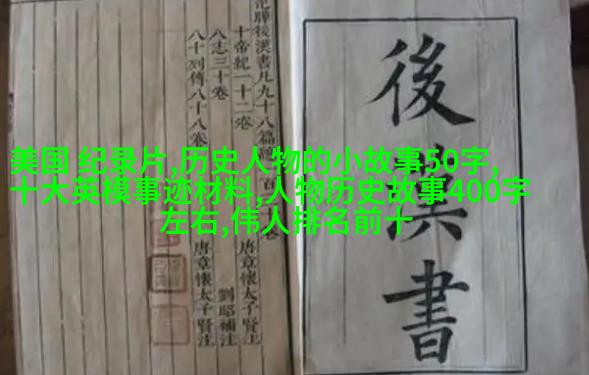 後漢書
曄後漢書凡九十八篇
十帝紀一十二卷 唐章懷太子賢注
八志三十卷 劉昭補注
八十列傳八十八卷 唐章懷太子賢注
美国 纪录片,历史人物的小故事50字,
十大英模事迹材料,人物历史故事400字
左右,伟人排名前十